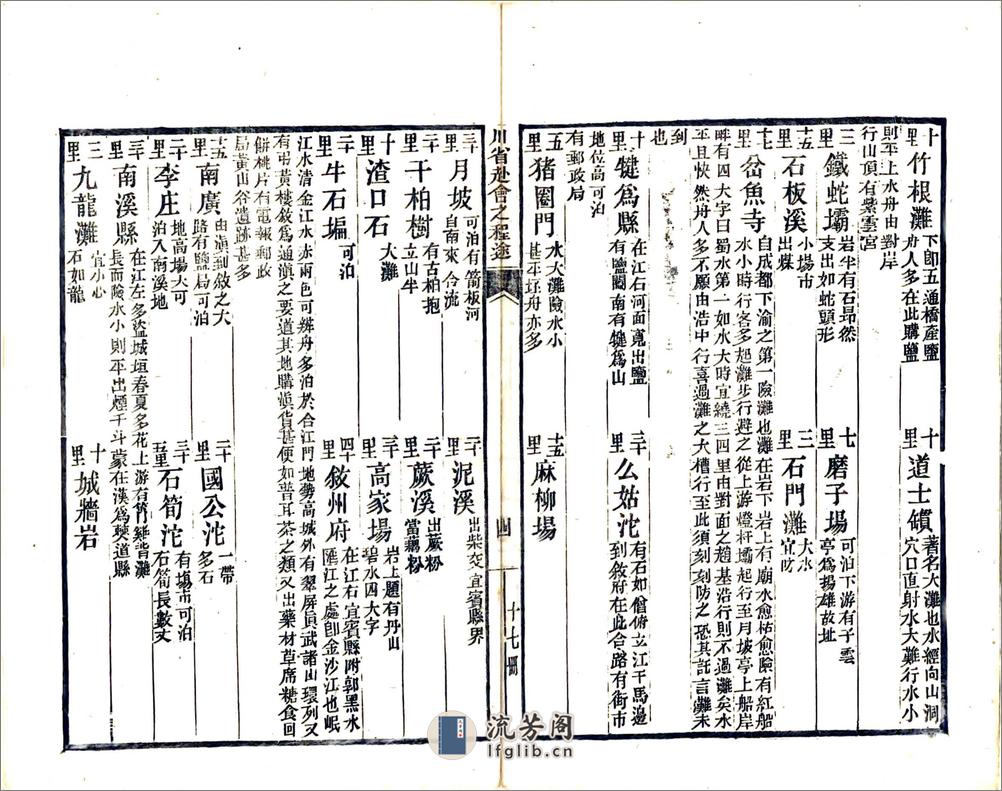 十里 竹根灘 下卽五通橋產鹽舟人多在此購鹽
十里 道士磧 著名大灘也水經向山洞穴口直射水大難行水小
則平上水舟由對岸
行山頂有紫雲宮
三里 鐵蛇壩 岩半有石昻然支出如蛇頭形
七里 磨子場 可泊下游有子雲亭爲揚雄故址
十五里 石板溪 小場市出煤
三里 石門灘 大水宜防
十七里 岔魚寺 自成都下渝之第一險灘也灘在岩下岩上有廟水愈枯愈險有紅船
水小時行客多起灘步行避之從上游燈杆壩起行至月坡亭上船岸
畔有四大字曰蜀水第一如水大時宜繞三四里由對面之趙基沿行則不過灘矣水
平且快然舟人多不願由浩中行喜過灘之大槽行至此須刻刻防之恐其託言灘未
到也
十里 犍爲縣 在江右河面寬出鹽有鹽關南有犍爲山
三十里 么姑沱 有石如僧俯立江干馬邊到敘府在此合路有街市
地位高可泊
有郵政局
五里 猪圈門 水大灘險水小甚平坯舟亦多
十五里 麻柳場
川省赴會之程途
四
十七
三十里 月坡 可泊有箭板河自南來合流
二十里 泥溪 出柴交宜賓縣界
二十里 干柏樹 有古柏抱立山半
二十里 蕨溪 出蕨粉當藕粉
十里 渣口石 大灘
三十里 高家場 岩上題有丹山碧水四大字
三十里 牛石塥 可泊
四十里 敘州府 在江右宜賓縣附郭黑水匯江之處卽金沙江也岷
江水清金江水赤兩色可辨舟多泊於合江門地勢高城外有翠屏眞武諸山環列又
有弔黃樓敘爲通滇之要道其地購滇貨甚便如普耳茶之類又出藥材草席糖食回
餅桃片有電報郵政
局黃山谷遺跡甚多
十五里 南廣 由滇到敘之大路有鹽局可泊
二十里 國公沱 一帶多石
三十里 李庄 地高場大可泊入南溪地
三十五里 石筍沱 有塲市可泊石筍長數丈
三十里 南溪縣 在江左多盜城垣春夏多花上游有筲箕背灘
長而險水小則平出煙干斗蒙在漢爲僰道縣
三里 九龍灘 宜小心石如龍
十里 城牆岩
流芳阁
lfglib.cn